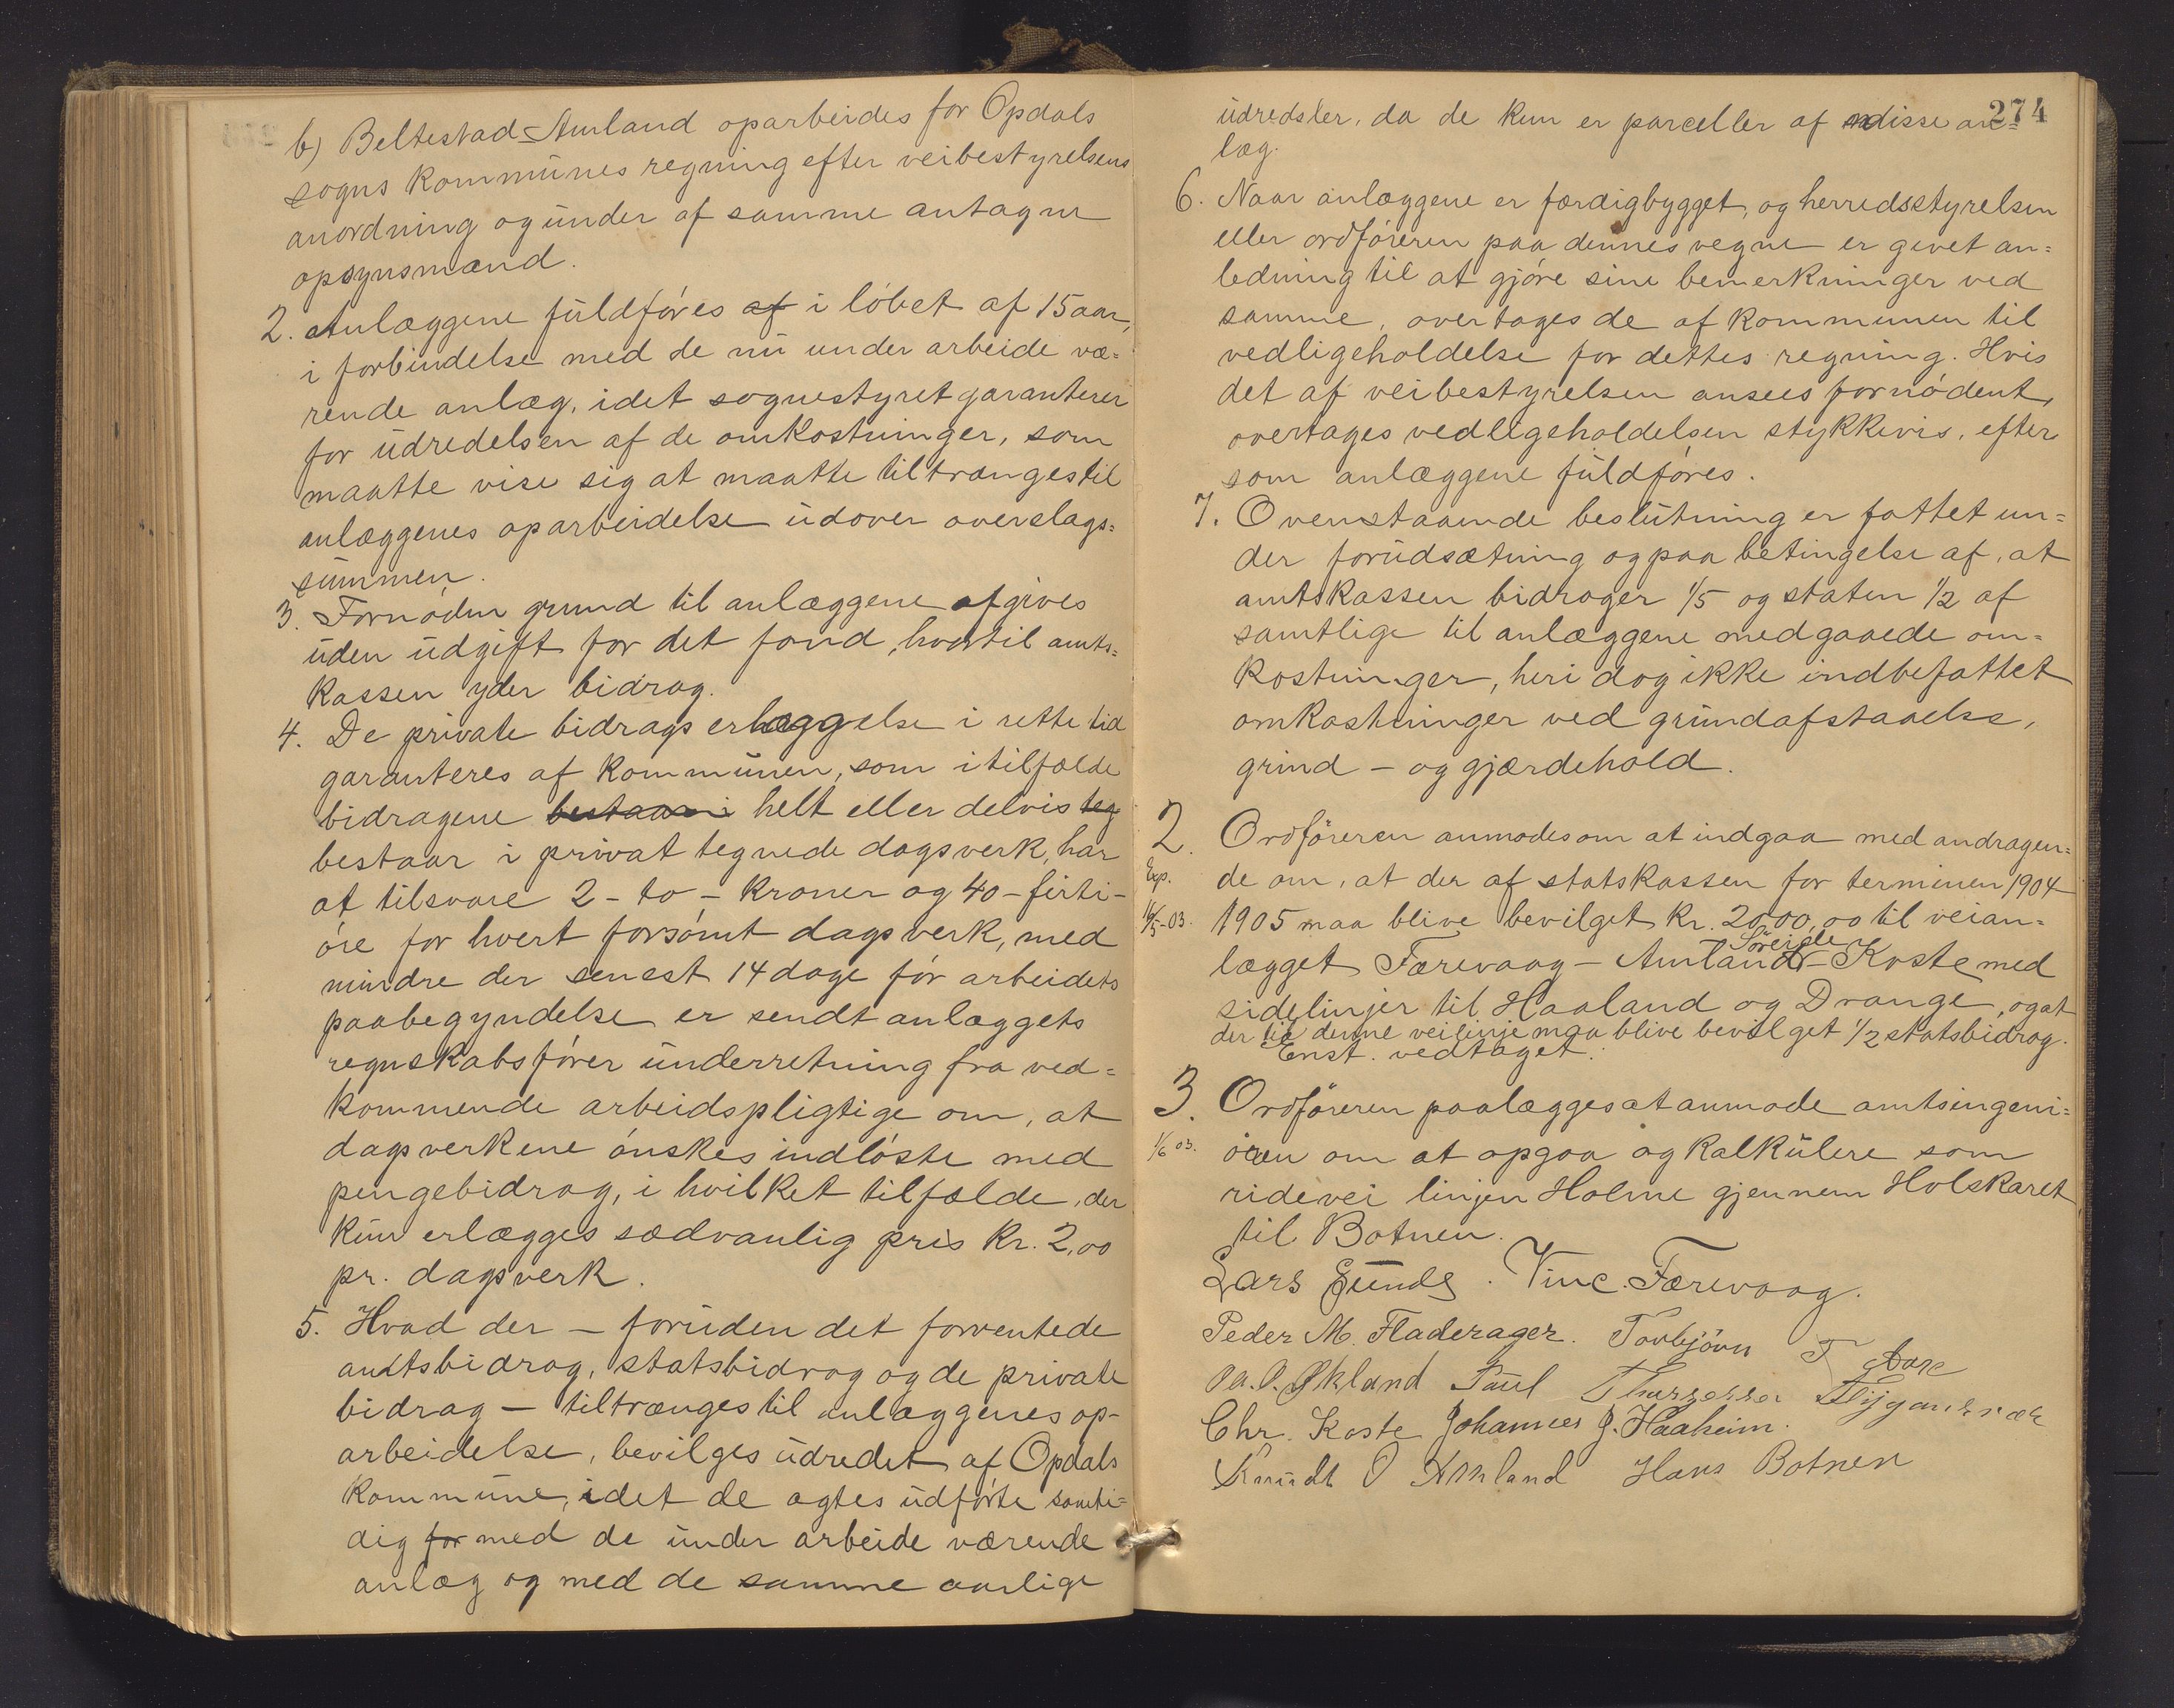 b) Beltestad-Amland oparbeides for Opdals
sogns kommunes regning efter veibestyrelsens
anordning og under af samme antagne
opsynsmænd.
2. Anlæggene fuldføres af i løbet af 15 aar,
i forbindelse med de nu under arbeide væ=
rende anlæg, idet sognestyret garanterer
for udredelsen af de omkostninger, som
maatte vise sig at maatte tiltrænges til
anlæggenes oparbeidelse udover overslags=
summen.
3. Fornøden grund til anlæggene afgives
uden udgift for det fond, hvortil amts=
kassen yder bidrag.
4. De private bidrags erlæggelse i rette tid
garanteres af kommunen, som i tilfælde
bidragene bestaar i helt eller delvis teg
bestaar i privat tegnede dagsverk, har
at tilsvare 2 - to - kroner og 40 - firti -
øre for hvert forsømt dagsverk, med
mindre der senest 14 dage før arbeidets
paabegyndelse er sendt anlæggets
regnskabsfører underretning fra ved=
kommende arbeidspligtige om, at
dagsverkene ønskes indløste med
pengebidrag, i hvilket tilfælde, der
kun erlægges sædvanlig pris kr. 2,00
pr. dagsverk.
5. Hvad der - foruden det forventede
amtsbidrag, statsbidrag og de private
bidrag - tiltrænges til anlæggenes op-
arbeidelse, bevilges udredet af Opdals
kommune, idet de agtes udførte samti=
dig for med de under arbeide værende
anlæg og med de samme aarlige
274
udredsler, da de kun er parceller af disse an=
læg.
6. Naar anlæggene er færdigbygget, og herredsstyrelsen
eller ordføreren paa dennes vegne er givet an=
ledning til at gjøre sine bemerkninger ved
samme, overtages de af kommunen til
vedligeholdelse for dettes regning. Hvis
det af veibestyrelsen ansees fornødent,
overtages vedligeholdelsen stykkevis, efter
som anlæggene fuldføres.
7. Ovenstaaende beslutning er fattet un=
der forudsætning og paa betingelse af, at
amtskassen bidrager 1/5 og staten 1/2 af
samtlige til anlæggene medgaaede om=
kostninger, heri dog ikke indbefattet
omkostninger ved grundafstaaelse,
grind - og gjærdehold.
2. Ordføreren anmodes om at indgaa med andragen=
Exp. de om, at der af statskassen for terminen 1904
16/5-03. 1905 maa blive bevilget kr. 2000,00 til veian=
Søreide
lægget Færevaag - Amland - Koste med
sidelinjer til Haaland og Drange, og at
der til denne veilinje maa blive bevilget 1/2 statsbidrag.
Enst. vedtaget.
3. Ordføreren paalægges at anmode amtsingeni=
1/6 03. øren om at opgaa og kalkulere som
ridevei linjen Holme gjennem Holskaret
til Botnen.
Lars Eünds. Vinc. Færevaag.
Peder M. Fladerager. Torbjørn T Aase
O. Økland Paul
Chr. Koste Johannes J. Haaheim.
Knudt O Amland Hans Botnen